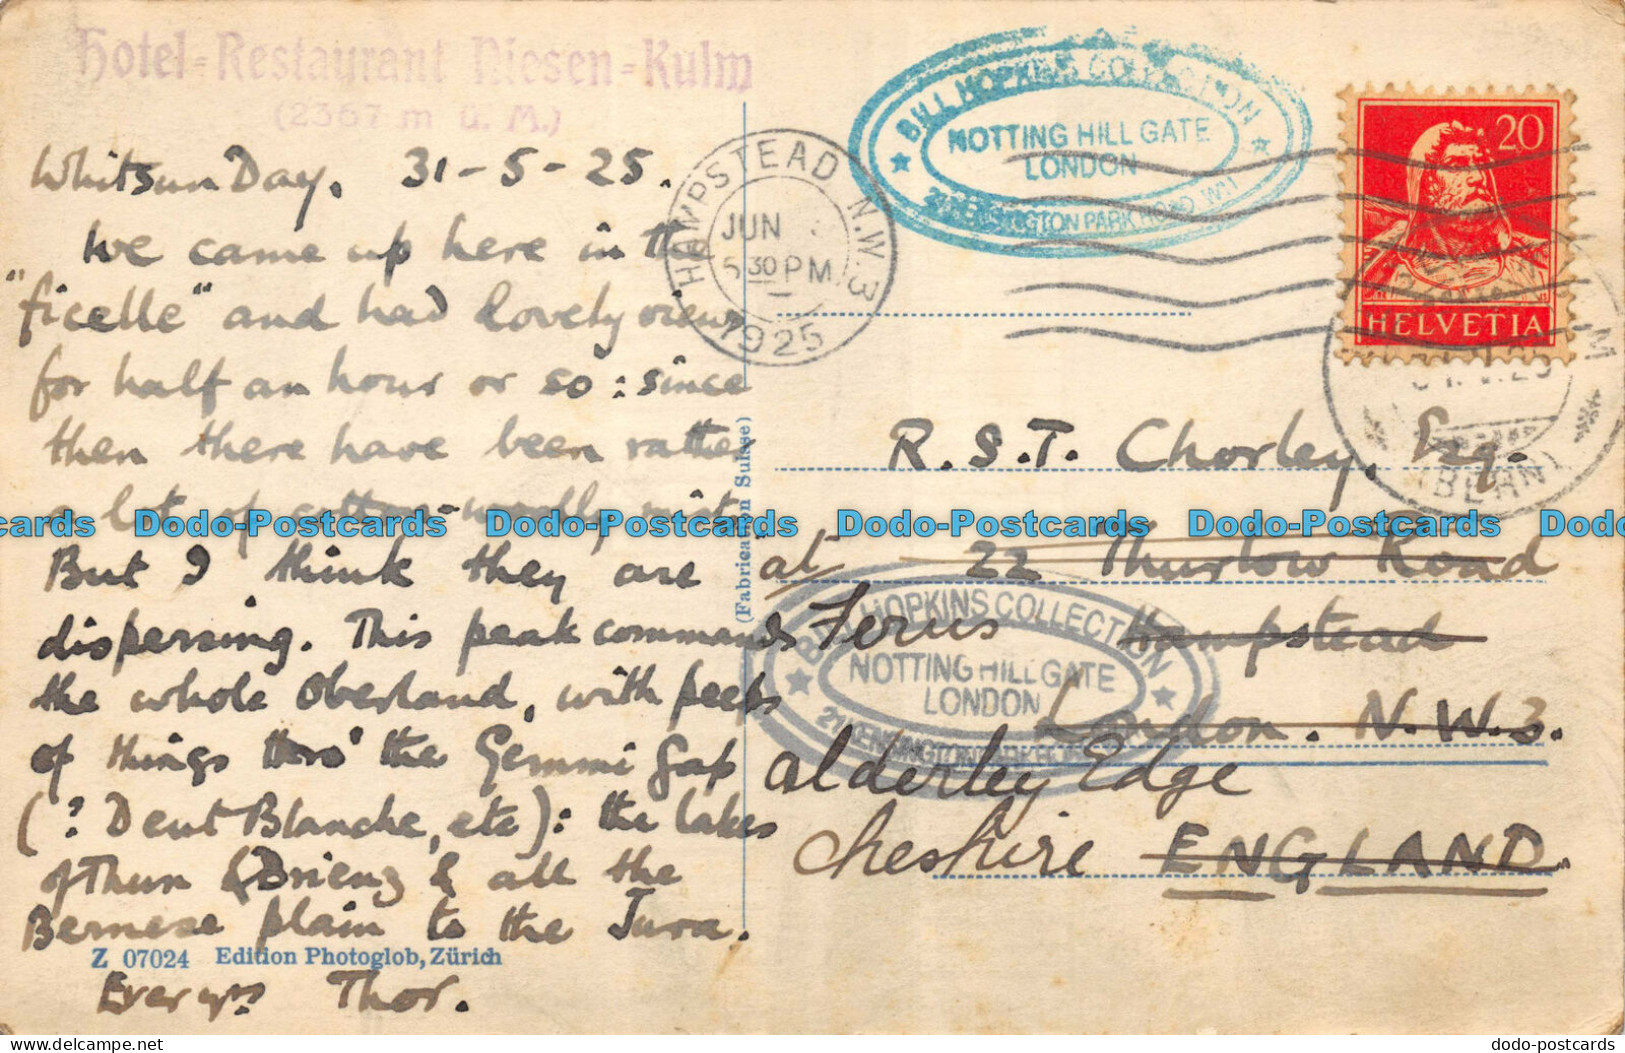 Hotel-Restaurant Niesen-Kulm
(2367 m ü. M.)
Whitsun Day. 31-5-25.
We came up here in the
"ficelle" and had lovely views
for half an hour or so: since
then there have been rather
a lot of cotton-woolly mists
But I think they are
dispersing. This peak commands
the whole Oberland, with peeps
of things thro' the Gemmi Gap
(? Dent Blanche, etc): the lakes
of Thun & Brienz & all the
Bernese plain to the Jura.
Z 07024 Edition Photoglob, Zürich
Ever yrs Thor.
(Fabrication Suisse)
HAMPSTEAD N.W.3
JUN
5 30 PM
1925
BILL HOPKINS COLLECTION
NOTTING HILL GATE
LONDON
21 KENSINGTON PARK ROAD W11
20
HELVETIA
(BERN)
R.S.T. Chorley, Esq.
at 22 Thurlow Road
Ferns Hampstead
London. N.W.3.
Alderley Edge
Cheshire ENGLAND.
BILL HOPKINS COLLECTION
NOTTING HILL GATE
LONDON
21 KENSINGTON PARK ROAD
Dodo-Postcards Dodo-Postcards Dodo-Postcards Dodo-Postcards
www.delcampe.net
dodo-postcards